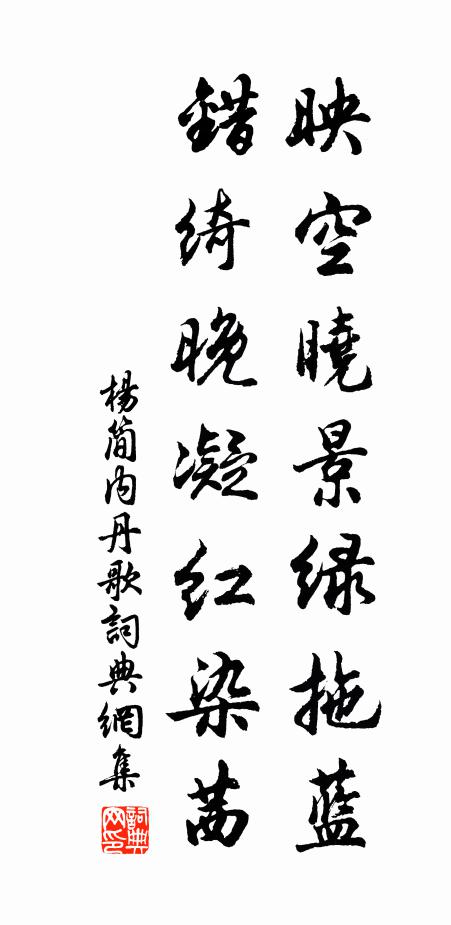 映空曉景綠拖藍
錯綺晚凝紅染茜
楊简內丹歌詞典網集
詞典網印